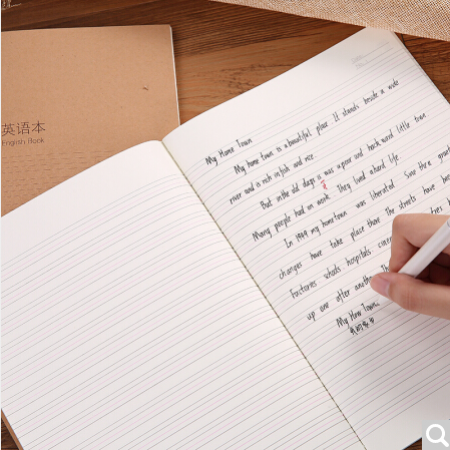 英语本
English Book
My Home Town
My home town is a beautiful place It stands beside a wide
river and is rich in fish and rice.
But in the old days it was a poor and back ward little town
Many people had on work. They lived a hard life
In 1949 my hometown was liberated. Sine thre great
changes have take place ther The streets have
Factories schools hospitals
up one after another. Th
My Home Town...
我的家乡